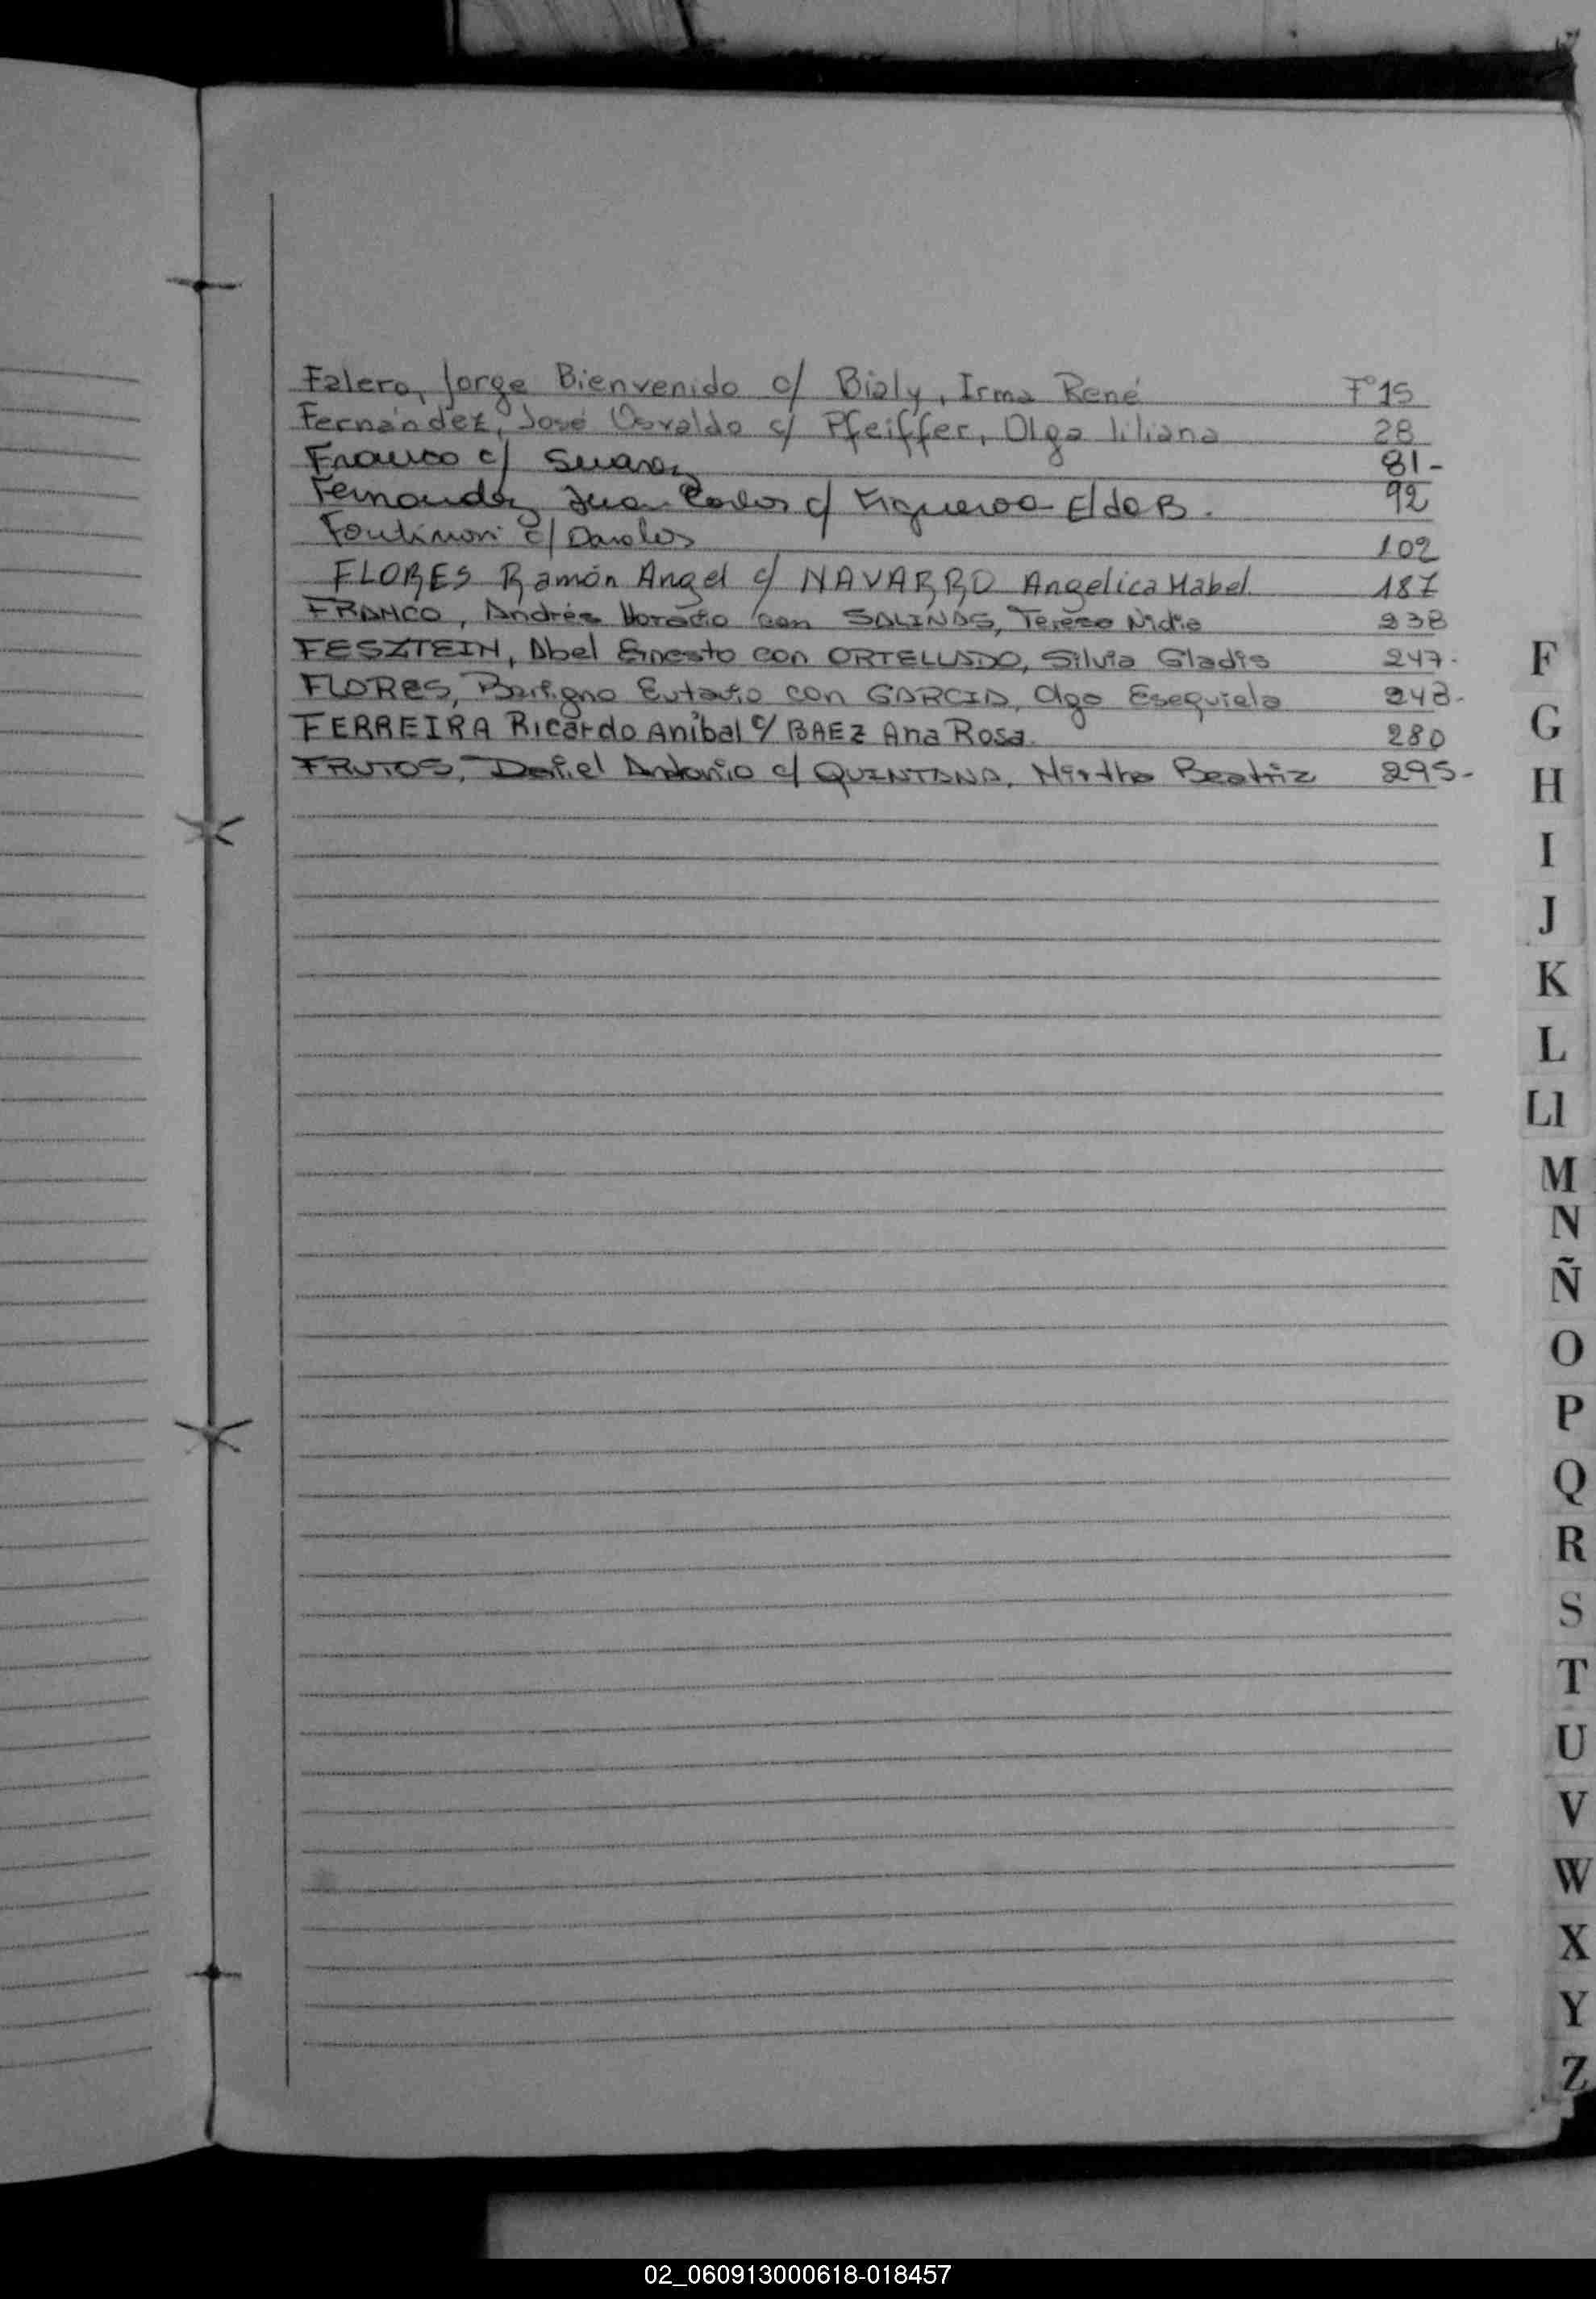 Falero, Jorge Bienvenido c/ Bialy, Irma René F°15
Fernández, José Osvaldo c/ Pfeiffer, Olga liliana 28
Franco c/ Suarez 81-
Fernandez Juan Carlos c/ Figueroa Elda B. 92
c/ 102
FLORES Ramón Angel c/ NAVARRO Angelica Mabel 187
FRANCO, Andrés Horacio con SALINAS, Teresa Nidia 238
FESZTEIN, Abel Ernesto con ORTELLADO, Silvia Gladis 247-
FLORES, Benigno con GARCIA, Olga Esequiela 248-
FERREIRA Ricardo Anibal c/ BAEZ Ana Rosa. 280
FRUTOS, Daniel Antonio c/ QUINTANA, Mirtha Beatriz 295-
F
G
H
I
J
K
L
Ll
M
N
Ñ
O
P
Q
R
S
T
U
V
W
X
Y
Z
02_060913000618-018457